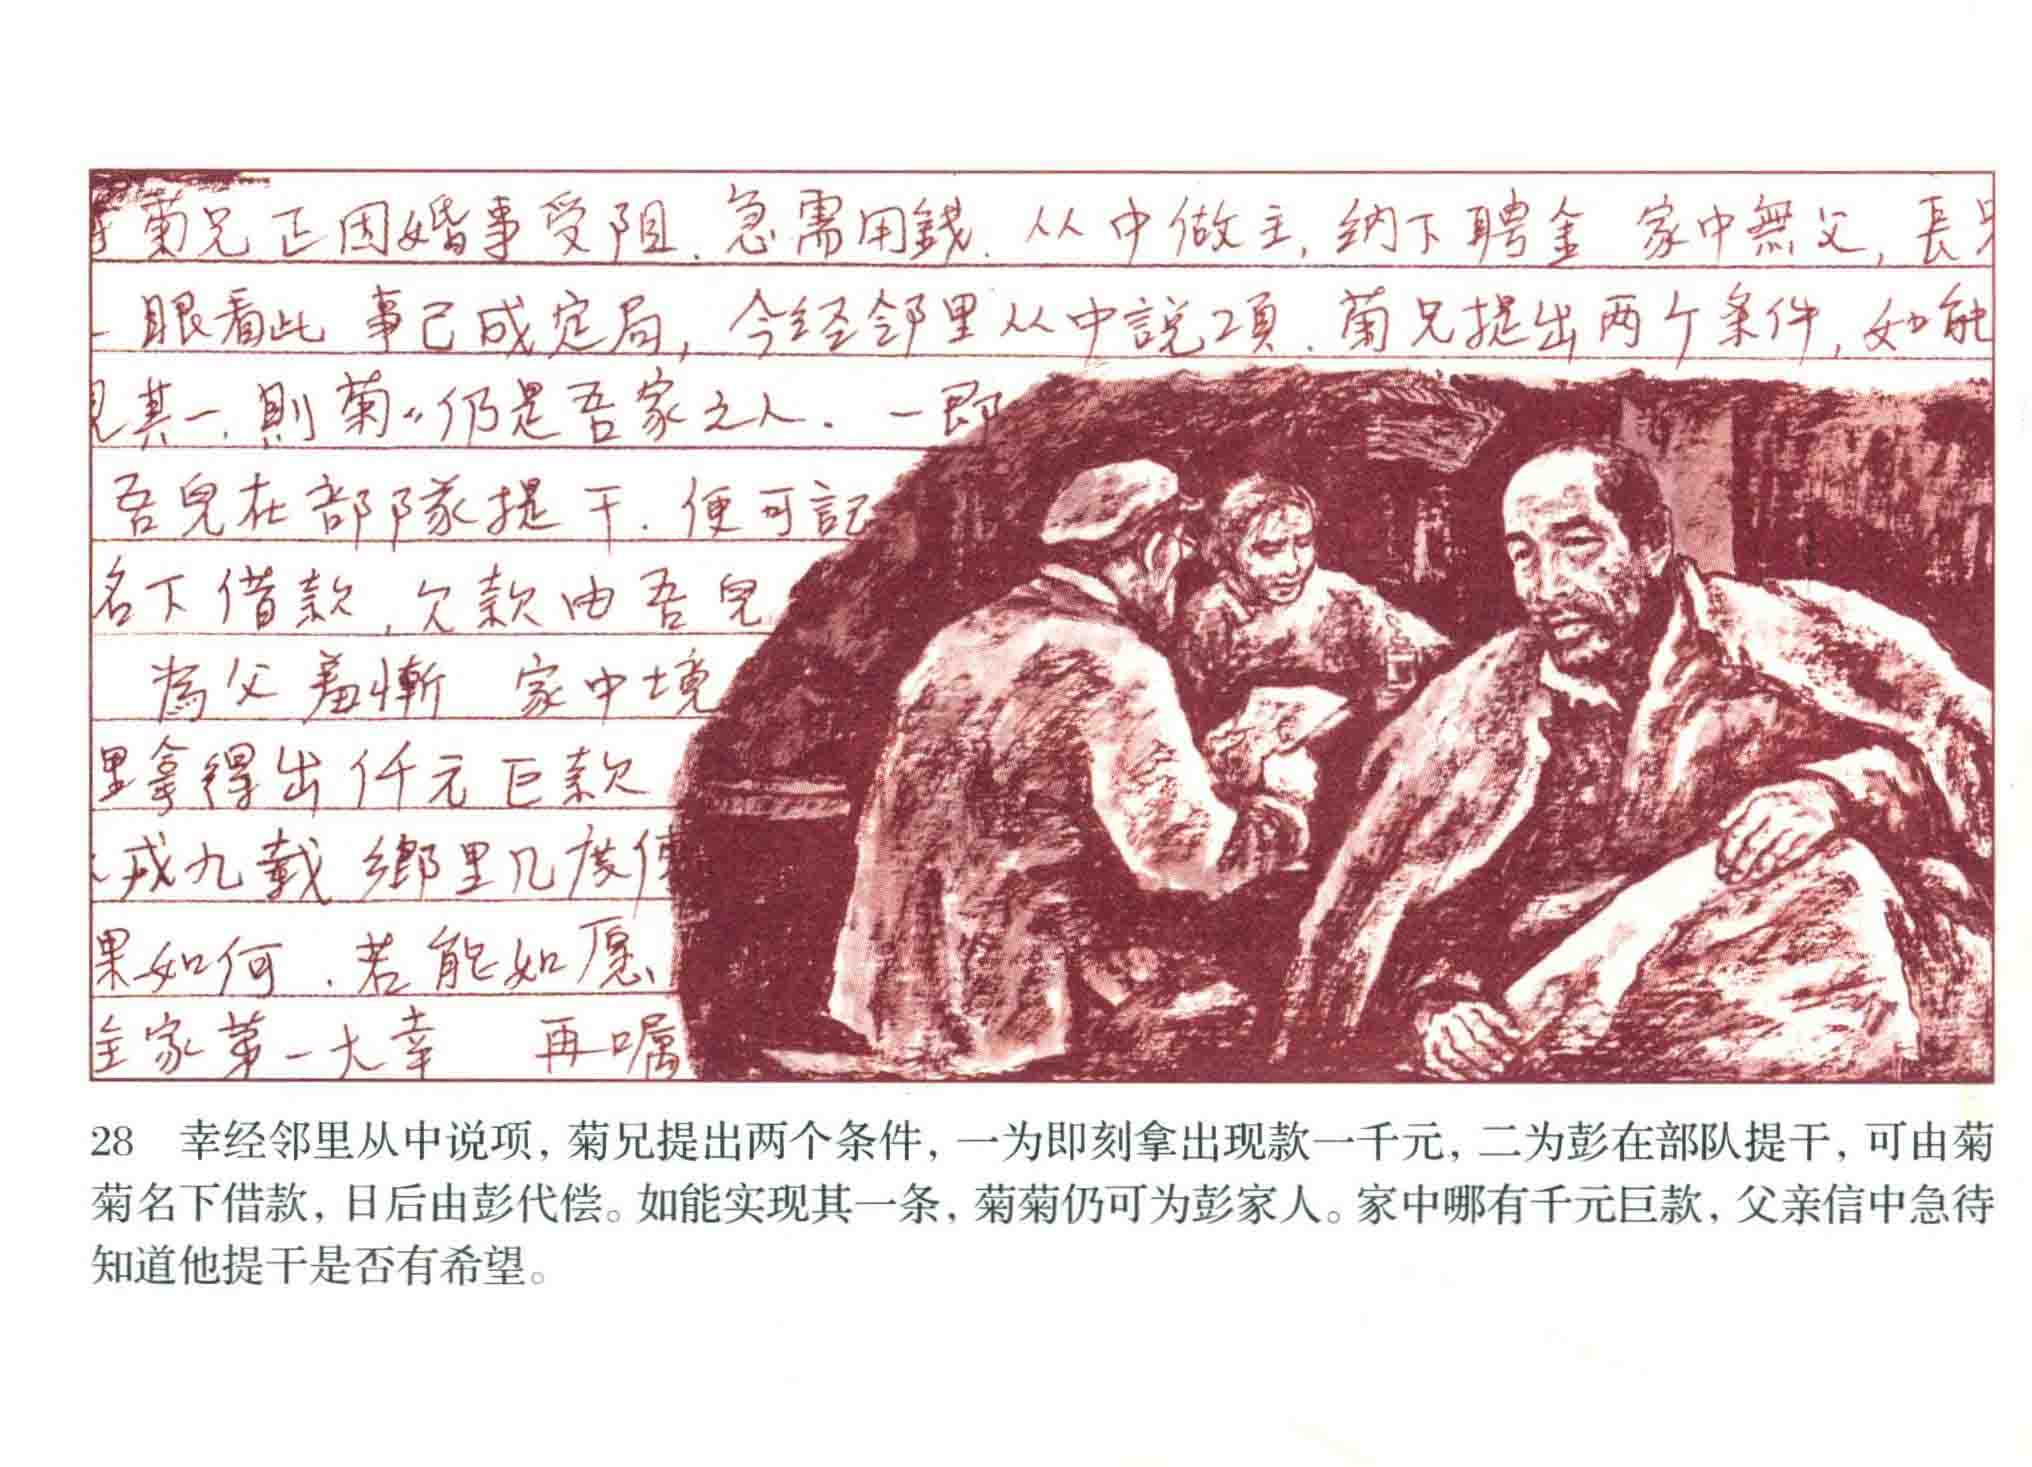 菊兄正因婚事受阻.急需用錢.从中做主,纳下聘金 家中無父,長兄
眼看此 事已成定局,今经邻里从中説项.菊兄提出两个条件,如能
其一.則菊〃仍是吾家之人.一即
吾兒在部隊提干.便可記
名下借款,欠款由吾兒
為父羞慚 家中境
里拿得出仟元巨款
戎九載 鄉里几度传
果如何.若能如愿、
全家第一大幸 再嘱
28 幸经邻里从中说项,菊兄提出两个条件,一为即刻拿出现款一千元,二为彭在部队提干,可由菊
菊名下借款,日后由彭代偿。如能实现其一条,菊菊仍可为彭家人。家中哪有千元巨款,父亲信中急待
知道他提干是否有希望。